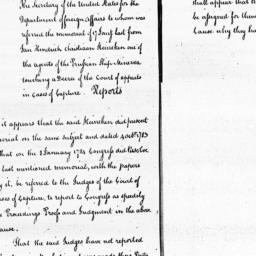 The Secretary of the United States for the
Department of foreign Affairs to whom was
referred the memorial of 17 Jany last from
Jan Hendrick Christiaan Heineken one of
the agents of the Prussian Ship Minerva
touching a Decree of the Court of appeals
in cases of Capture. Reports
it appears that the said Heineken did present
morial on the same subject and dated 4 Octr 1783
that on the 2 January 1784 Congress did Resolve
last mentioned memorial, with the papers
ng it, be referred to the Judges of the Court of
ases of Capture, to report to Congress as speedily
e Proceedings Proofs and Judgment in the above
ause.
That the said Judges have not reported
shall appear that t
be assigned for them
Cause why they ha